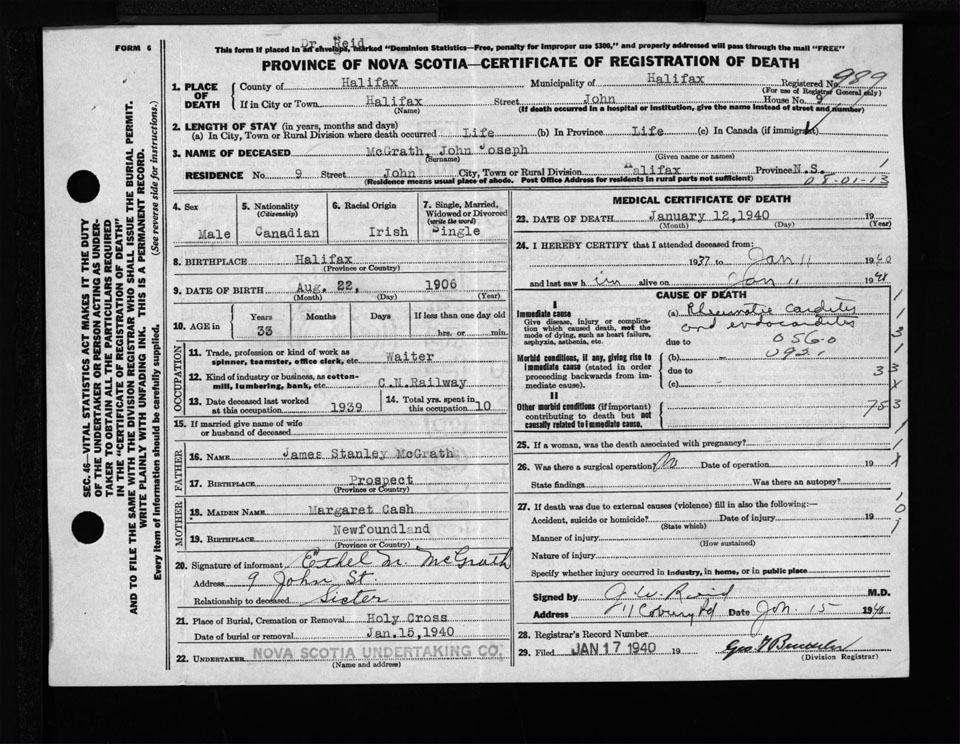 Dr. Reid
FORM 6
This form if placed in an envelope, marked "Dominion Statistics—Free, penalty for improper use $300," and properly addressed will pass through the mail "FREE"
PROVINCE OF NOVA SCOTIA—CERTIFICATE OF REGISTRATION OF DEATH
989
1. PLACE OF DEATH
County of Halifax Municipality of Halifax Registered No.
(For use of Registrar General only)
If in City or Town Halifax Street John House No. 9
(Name) (If death occurred in a hospital or institution, give the name instead of street and number)
2. LENGTH OF STAY (in years, months and days)
(a) In City, Town or Rural Division where death occurred Life (b) In Province Life (c) In Canada (if immigrant)
3. NAME OF DECEASED McGrath, John Joseph
(Surname) (Given name or names)
RESIDENCE No. 9 Street John City, Town or Rural Division Halifax Province N.S.
(Residence means usual place of abode. Post Office Address for residents in rural parts not sufficient)
08-01-13
1
4. Sex
Male
5. Nationality
(Citizenship)
Canadian
6. Racial Origin
Irish
7. Single, Married, Widowed or Divorced
(write the word)
Single
8. BIRTHPLACE Halifax
(Province or Country)
9. DATE OF BIRTH Aug. 22, 1906
(Month) (Day) (Year)
10. AGE in
Years Months Days If less than one day old
33 hrs. or min.
OCCUPATION
11. Trade, profession or kind of work as
spinner, teamster, office clerk, etc. Waiter
12. Kind of industry or business, as cotton-
mill, lumbering, bank, etc. C.N.Railway
13. Date deceased last worked
at this occupation 1939
14. Total yrs. spent in
this occupation 10
15. If married give name of wife
or husband of deceased
FATHER
16. NAME James Stanley McGrath
17. BIRTHPLACE Prospect
(Province or Country)
MOTHER
18. MAIDEN NAME Margaret Cash
19. BIRTHPLACE Newfoundland
(Province or Country)
20. Signature of informant Ethel M. McGrath
Address 9 John St.
Relationship to deceased Sister
21. Place of Burial, Cremation or Removal Holy Cross
Date of burial or removal Jan.15,1940
22. UNDERTAKER NOVA SCOTIA UNDERTAKING CO.
(Name and address)
MEDICAL CERTIFICATE OF DEATH
23. DATE OF DEATH January 12,1940 19
(Month) (Day) (Year)
24. I HEREBY CERTIFY that I attended deceased from:
1937 to Jan 11 1940
and last saw him alive on Jan 11 1940
CAUSE OF DEATH
I
Immediate cause
Give disease, injury or complica-
tion which caused death, not the
mode of dying, such as heart failure,
asphyxia, asthenia, etc.
(a) Rheumatic carditis
and endocarditis
056.0
due to
Morbid conditions, if any, giving rise to
immediate cause (stated in order
proceeding backwards from im-
mediate cause).
(b)
due to
(c)
II
Other morbid conditions (if important)
contributing to death but not
causally related to immediate cause.
25. If a woman, was the death associated with pregnancy?
26. Was there a surgical operation? No Date of operation 19
State findings Was there an autopsy?
27. If death was due to external causes (violence) fill in also the following:—
Accident, suicide or homicide? Date of injury 19
(State which)
Manner of injury
(How sustained)
Nature of injury
Specify whether injury occurred in industry, in home, or in public place
Signed by J. W. Reid M.D.
Address 71 Coburg Rd Date Jan. 15 1940
28. Registrar's Record Number
29. Filed JAN 17 1940 19
(Division Registrar)
SEC. 46—VITAL STATISTICS ACT MAKES IT THE DUTY
OF THE UNDERTAKER OR PERSON ACTING AS UNDER-
TAKER TO OBTAIN ALL THE PARTICULARS REQUIRED
IN THE "CERTIFICATE OF REGISTRATION OF DEATH"
AND TO FILE THE SAME WITH THE DIVISION REGISTRAR WHO SHALL ISSUE THE BURIAL PERMIT.
WRITE PLAINLY WITH UNFADING INK. THIS IS A PERMANENT RECORD.
Every item of Information should be carefully supplied. (See reverse side for instructions.)